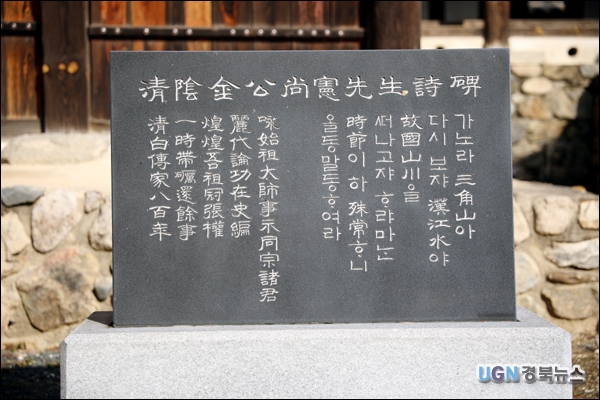 清陰金公尙憲先生詩碑
가노라 三角山아
다시 보쟈 漢江水야
故國山川을
ᄯᅥ나고쟈 ᄒᆞ랴마ᄂᆞᆫ
時節이 하 殊常ᄒᆞ니
올동말동ᄒᆞ여라
咏始祖太師事示同宗諸君
麗代論功在史編
煌煌吾祖冠張權
一時帶礪還餘事
清白傳家八百年
UGN경북뉴스